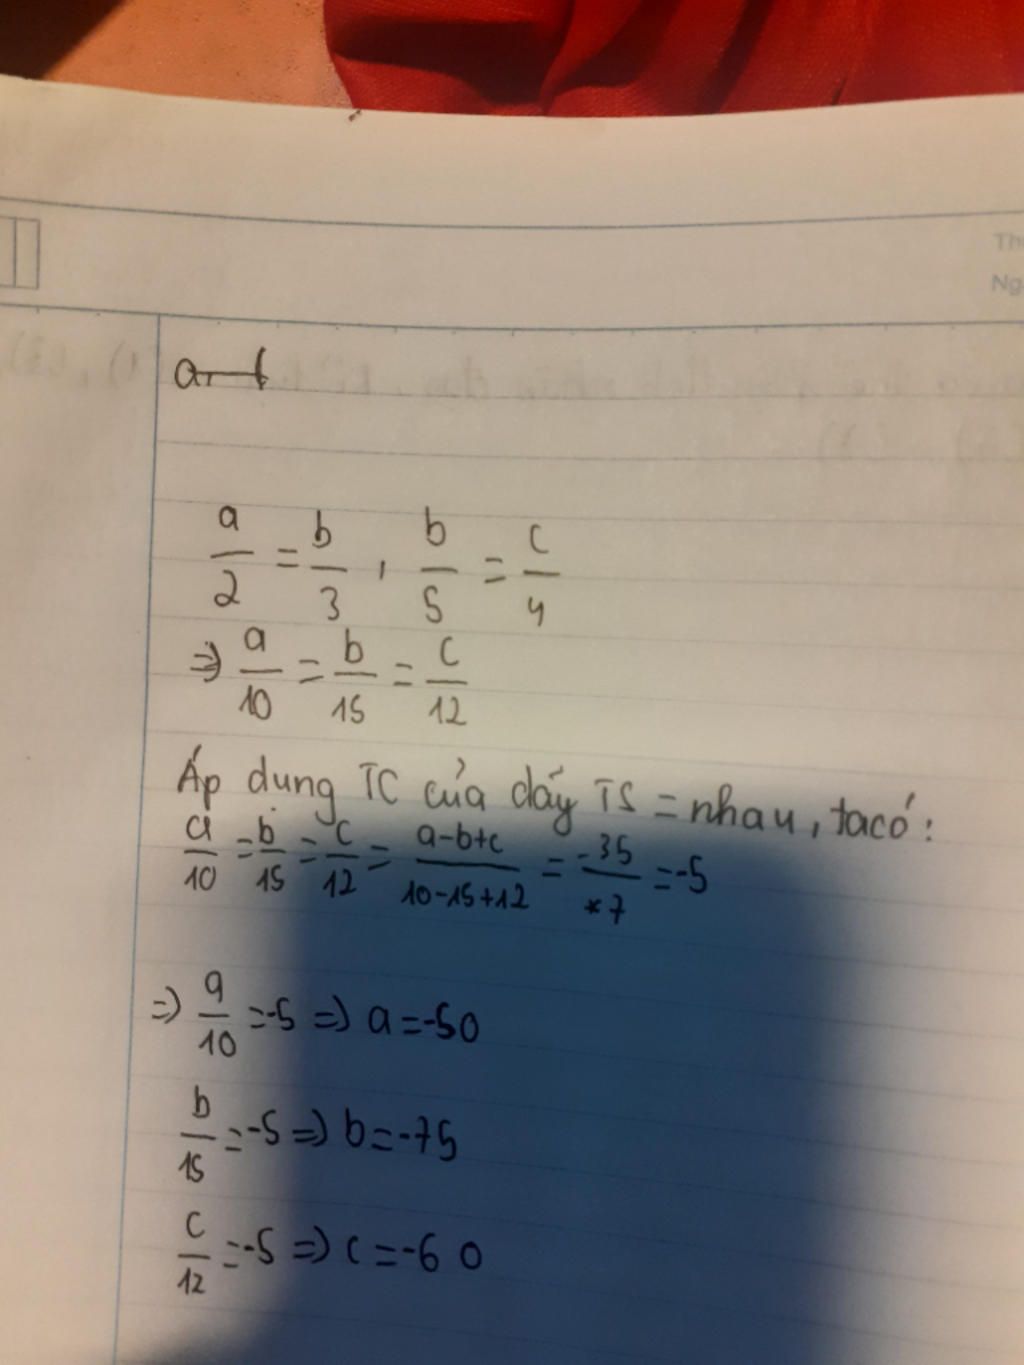 Th
Ng
a/2 = b/3 , b/5 = c/4
=> a/10 = b/15 = c/12
Áp dụng TC của dãy TS = nhau, ta có:
a/10 = b/15 = c/12 = a-b+c/10-15+12 = -35/7 = -5
=> a/10 = -5 => a = -50
b/15 = -5 => b = -75
c/12 = -5 => c = -60